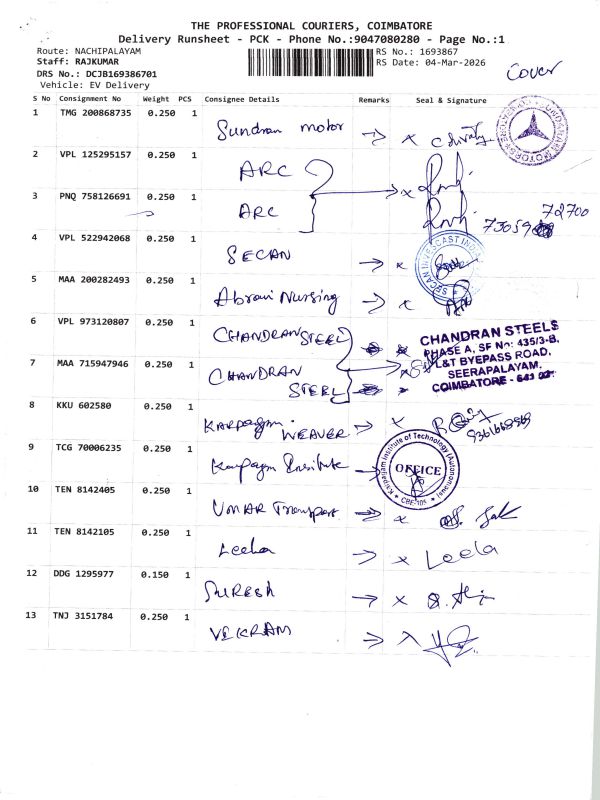 THE PROFESSIONAL COURIERS, COIMBATORE
Delivery Runsheet - PCK - Phone No.:9047080280 - Page No.:1
Route: NACHIPALAYAM
RS No.: 1693867
Staff: RAJKUMAR
RS Date: 04-Mar-2026
DRS No.: DCJB169386701
Vehicle: EV Delivery
Cover
S No Consignment No Weight PCS Consignee Details Remarks Seal & Signature
1 TMG 200868735 0.250 1 Sundran motor
2 VPL 125295157 0.250 1 ARC
3 PNQ 758126691 0.250 1 ARC
72700
73059
4 VPL 522942068 0.250 1 SECAN
SECAN INVESCAST
5 MAA 200282493 0.250 1 Abrani Nursing
6 VPL 973120807 0.250 1 CHANDRAN STEEL
CHANDRAN STEELS
PHASE A, SF No: 435/3-B,
L&T BYEPASS ROAD,
SEERAPALAYAM,
COIMBATORE -
7 MAA 715947946 0.250 1 CHANDRAN
STEEL
8 KKU 602580 0.250 1 Karpagam
WEAVER
9 TCG 70006235 0.250 1 Karpagm Institute
Karpagam Institute of Technology (Autonomous)
OFFICE
CBE-105
10 TEN 8142405 0.250 1 UMAR Transport
11 TEN 8142105 0.250 1 Leela Leela
12 DDG 1295977 0.150 1 SURESH
13 TNJ 3151784 0.250 1 VIKRAM